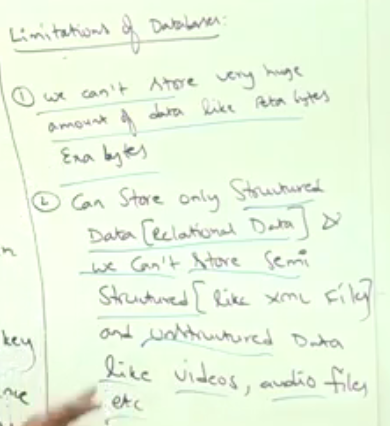 Limitations of Databases:
① we can't store very huge
amount of data like Peta bytes
Exa bytes
② Can Store only Structured
Data [Relational Data] &
we can't store Semi
Structured [like xml File]
and unstructured Data
key
like videos, audio files
etc